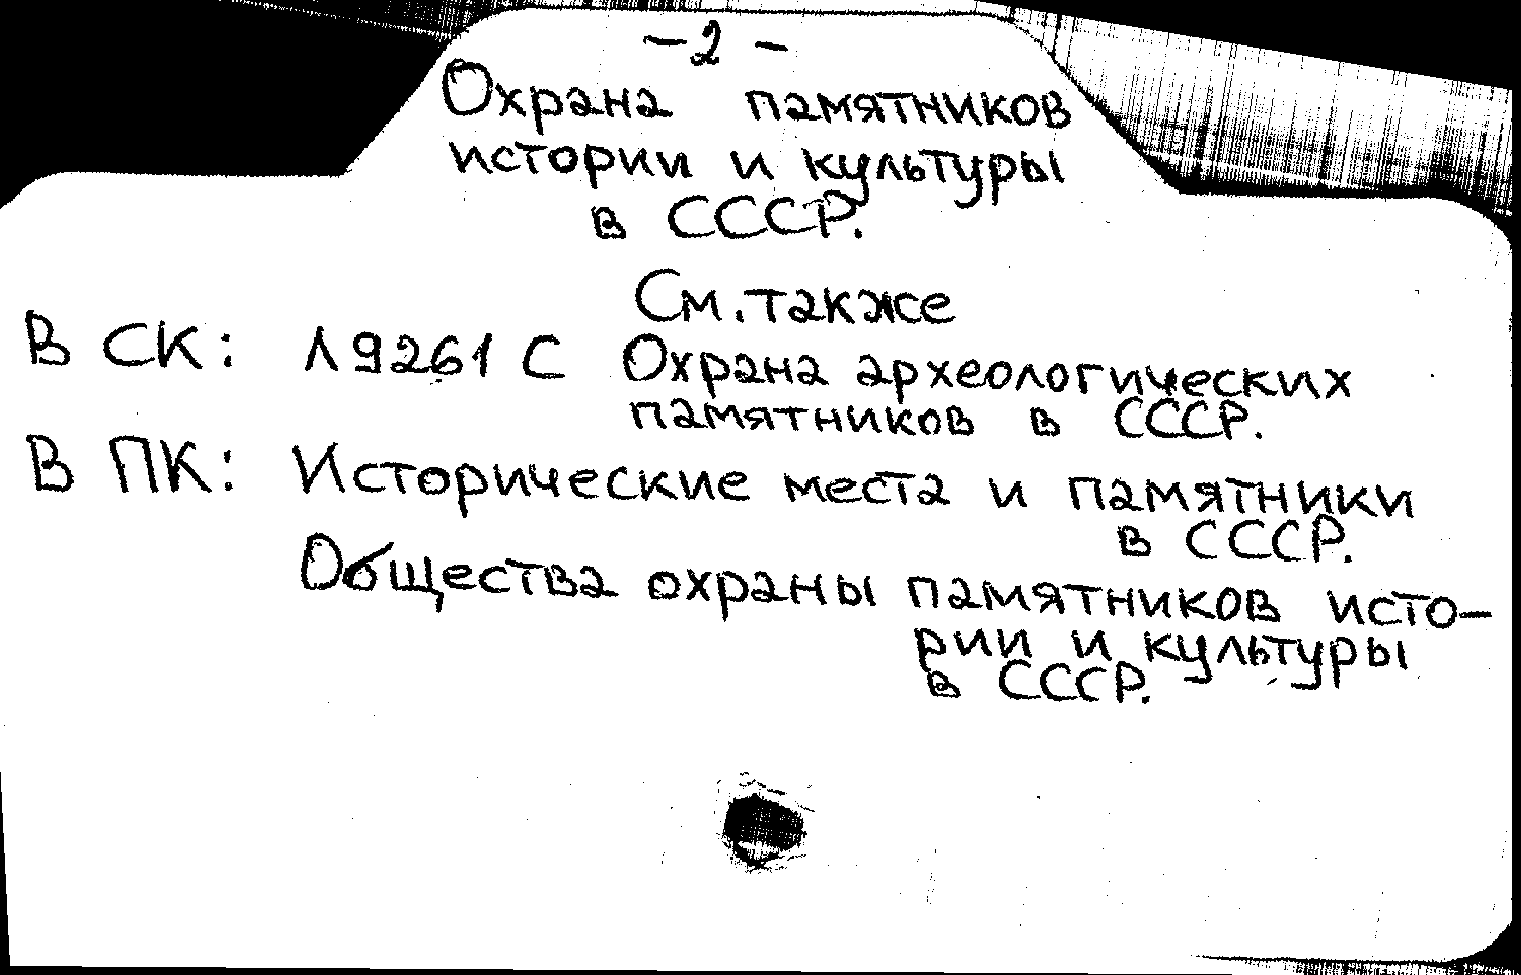 - 2 -
Охрана памятников
истории и культуры
в СССР.
См. также
В СК: Л9261 С Охрана археологических
памятников в СССР.
В ПК: Исторические места и памятники
в СССР.
Общества охраны памятников исто-
рии и культуры
в СССР.